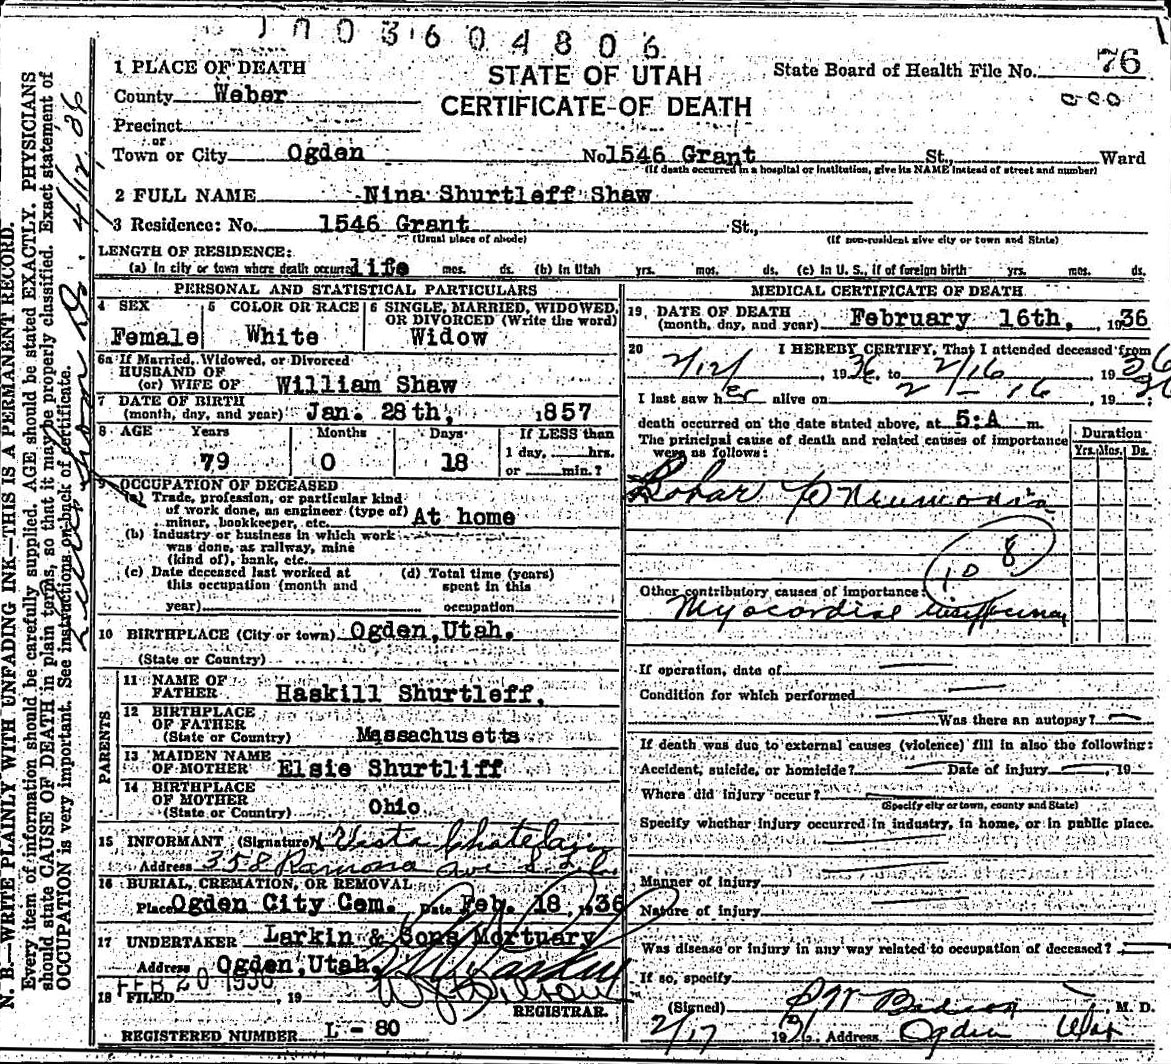 1703604806
STATE OF UTAH
CERTIFICATE OF DEATH
State Board of Health File No. 76
1 PLACE OF DEATH
County Weber
Precinct
or
Town or City Ogden No. 1546 Grant St., Ward
(If death occurred in a hospital or institution, give its NAME instead of street and number)
2 FULL NAME Nina Shurtleff Shaw
3 Residence: No. 1546 Grant St.,
(Usual place of abode) (If non-resident give city or town and State)
LENGTH OF RESIDENCE:
(a) In city or town where death occurred life mos. ds. (b) In Utah yrs. mos. ds. (c) In U. S., if of foreign birth yrs. mos. ds.
PERSONAL AND STATISTICAL PARTICULARS
4 SEX Female
5 COLOR OR RACE White
6 SINGLE, MARRIED, WIDOWED, OR DIVORCED (Write the word) Widow
6a If Married, Widowed, or Divorced
HUSBAND OF
(or) WIFE OF William Shaw
7 DATE OF BIRTH
(month, day, and year) Jan. 28th, 1857
8 AGE Years 79 Months 0 Days 18 If LESS than 1 day, hrs. or min.?
9 OCCUPATION OF DECEASED
(a) Trade, profession, or particular kind
of work done, as engineer (type of)
miner, bookkeeper, etc. At home
(b) Industry or business in which work
was done, as railway, mine
(kind of), bank, etc.
(c) Date deceased last worked at
this occupation (month and
year)
(d) Total time (years)
spent in this
occupation
10 BIRTHPLACE (City or town) Ogden, Utah.
(State or Country)
PARENTS
11 NAME OF
FATHER Haskill Shurtleff.
12 BIRTHPLACE
OF FATHER
(State or Country) Massachusetts
13 MAIDEN NAME
OF MOTHER Elsie Shurtliff
14 BIRTHPLACE
OF MOTHER
(State or Country) Ohio
15 INFORMANT (Signature) Vesta Chatelain
Address 358 Ramona Ave
16 BURIAL, CREMATION, OR REMOVAL
Place Ogden City Cem. Date Feb. 18, 36
17 UNDERTAKER Larkin & Sons Mortuary
Address Ogden, Utah.
FEB 20 1936
18 FILED , 19
REGISTRAR.
REGISTERED NUMBER L - 80
MEDICAL CERTIFICATE OF DEATH
19. DATE OF DEATH
(month, day, and year) February 16th, 1936
20 I HEREBY CERTIFY, That I attended deceased from
2/12/, 1936, to 2/16, 1936
I last saw her alive on 2-16, 1936;
death occurred on the date stated above, at 5:A m.
The principal cause of death and related causes of importance
were as follows:
Duration
Yrs. Mos. Ds.
Lobar Pneumonia
108
Other contributory causes of importance:
Myocardial
If operation, date of
Condition for which performed
Was there an autopsy?
If death was due to external causes (violence) fill in also the following:
Accident, suicide, or homicide? Date of injury , 19
Where did injury occur?
(Specify city or town, county and State)
Specify whether injury occurred in industry, in home, or in public place.
Manner of injury
Nature of injury
Was disease or injury in any way related to occupation of deceased?
If so, specify
(Signed) M. D.
2/17 1936 Address Ogden Utah
N. B.—WRITE PLAINLY WITH UNFADING INK—THIS IS A PERMANENT RECORD.
Every item of information should be carefully supplied. AGE should be stated EXACTLY. PHYSICIANS
should state CAUSE OF DEATH in plain terms, so that it may be properly classified. Exact statement of
OCCUPATION is very important. See instructions on back of certificate.
4/12/36